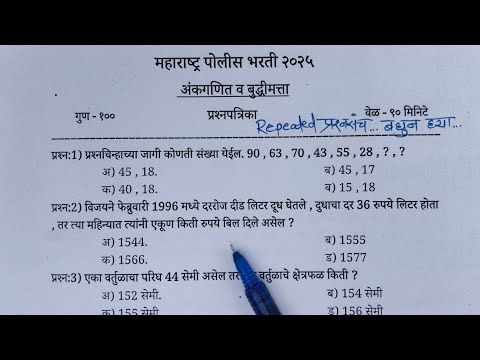 महाराष्ट्र पोलीस भरती २०२५
अंकगणित व बुद्धीमत्ता
गुण - १०० प्रश्नपत्रिका वेळ - ९० मिनिटे
Repeated प्रश्नसंच... बघुन घ्या...
प्रश्न:1) प्रश्नचिन्हाच्या जागी कोणती संख्या येईल. 90 , 63 , 70 , 43 , 55 , 28 , ? , ?
अ) 45 , 18. ब) 45 , 17
क) 40 , 18. ब) 15 , 18
प्रश्न:2) विजयने फेब्रुवारी 1996 मध्ये दररोज दीड लिटर दूध घेतले , दुधाचा दर 36 रुपये लिटर होता
, तर त्या महिन्यात त्यांनी एकूण किती रुपये बिल दिले असेल ?
अ) 1544. ब) 1555
क) 1566. ड) 1577
प्रश्न:3) एका वर्तुळाचा परिघ 44 सेमी असेल तर वर्तुळाचे क्षेत्रफळ किती ?
अ) 152 सेमी. ब) 154 सेमी
क) 155 सेमी ड) 156 सेमी